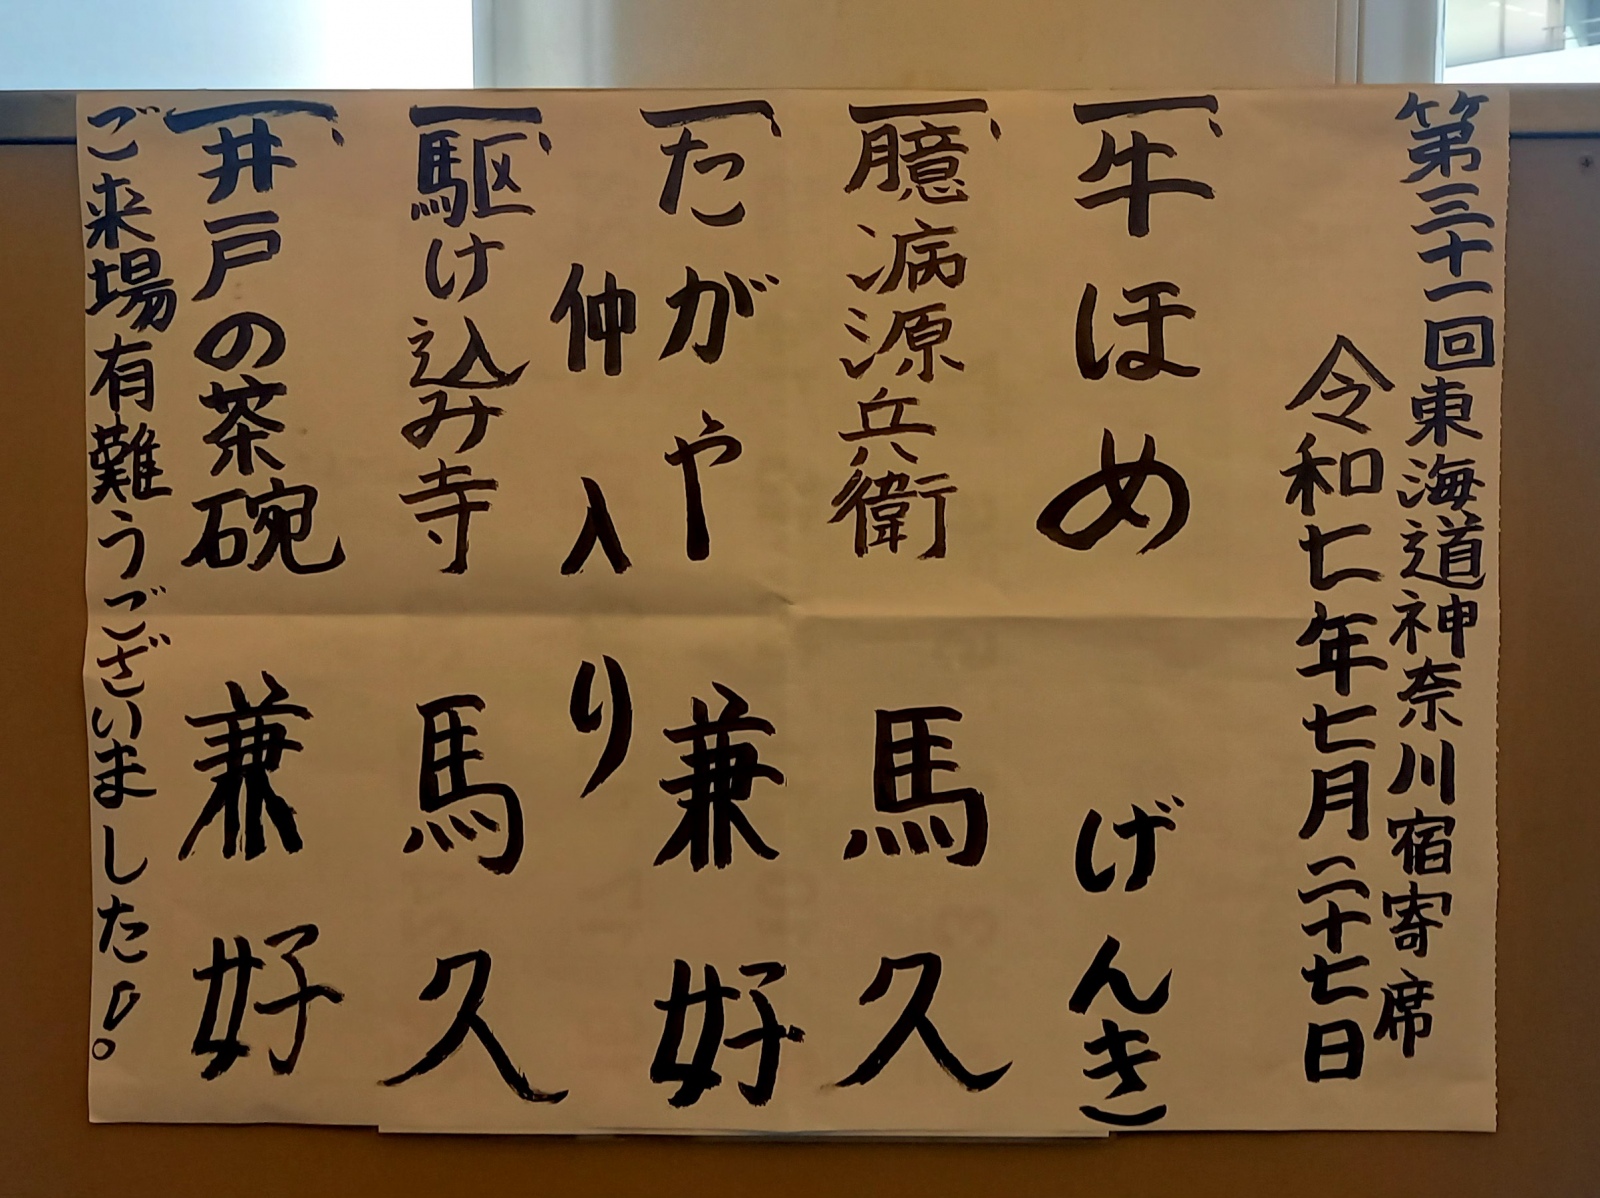 第三十一回東海道神奈川宿寄席
令和七年七月二十七日
一、牛ほめ げんき
一、臆病源兵衛 馬久
一、たがや 兼好
仲入り
一、駆け込み寺 馬久
一、井戸の茶碗 兼好
ご来場有難うございました！。